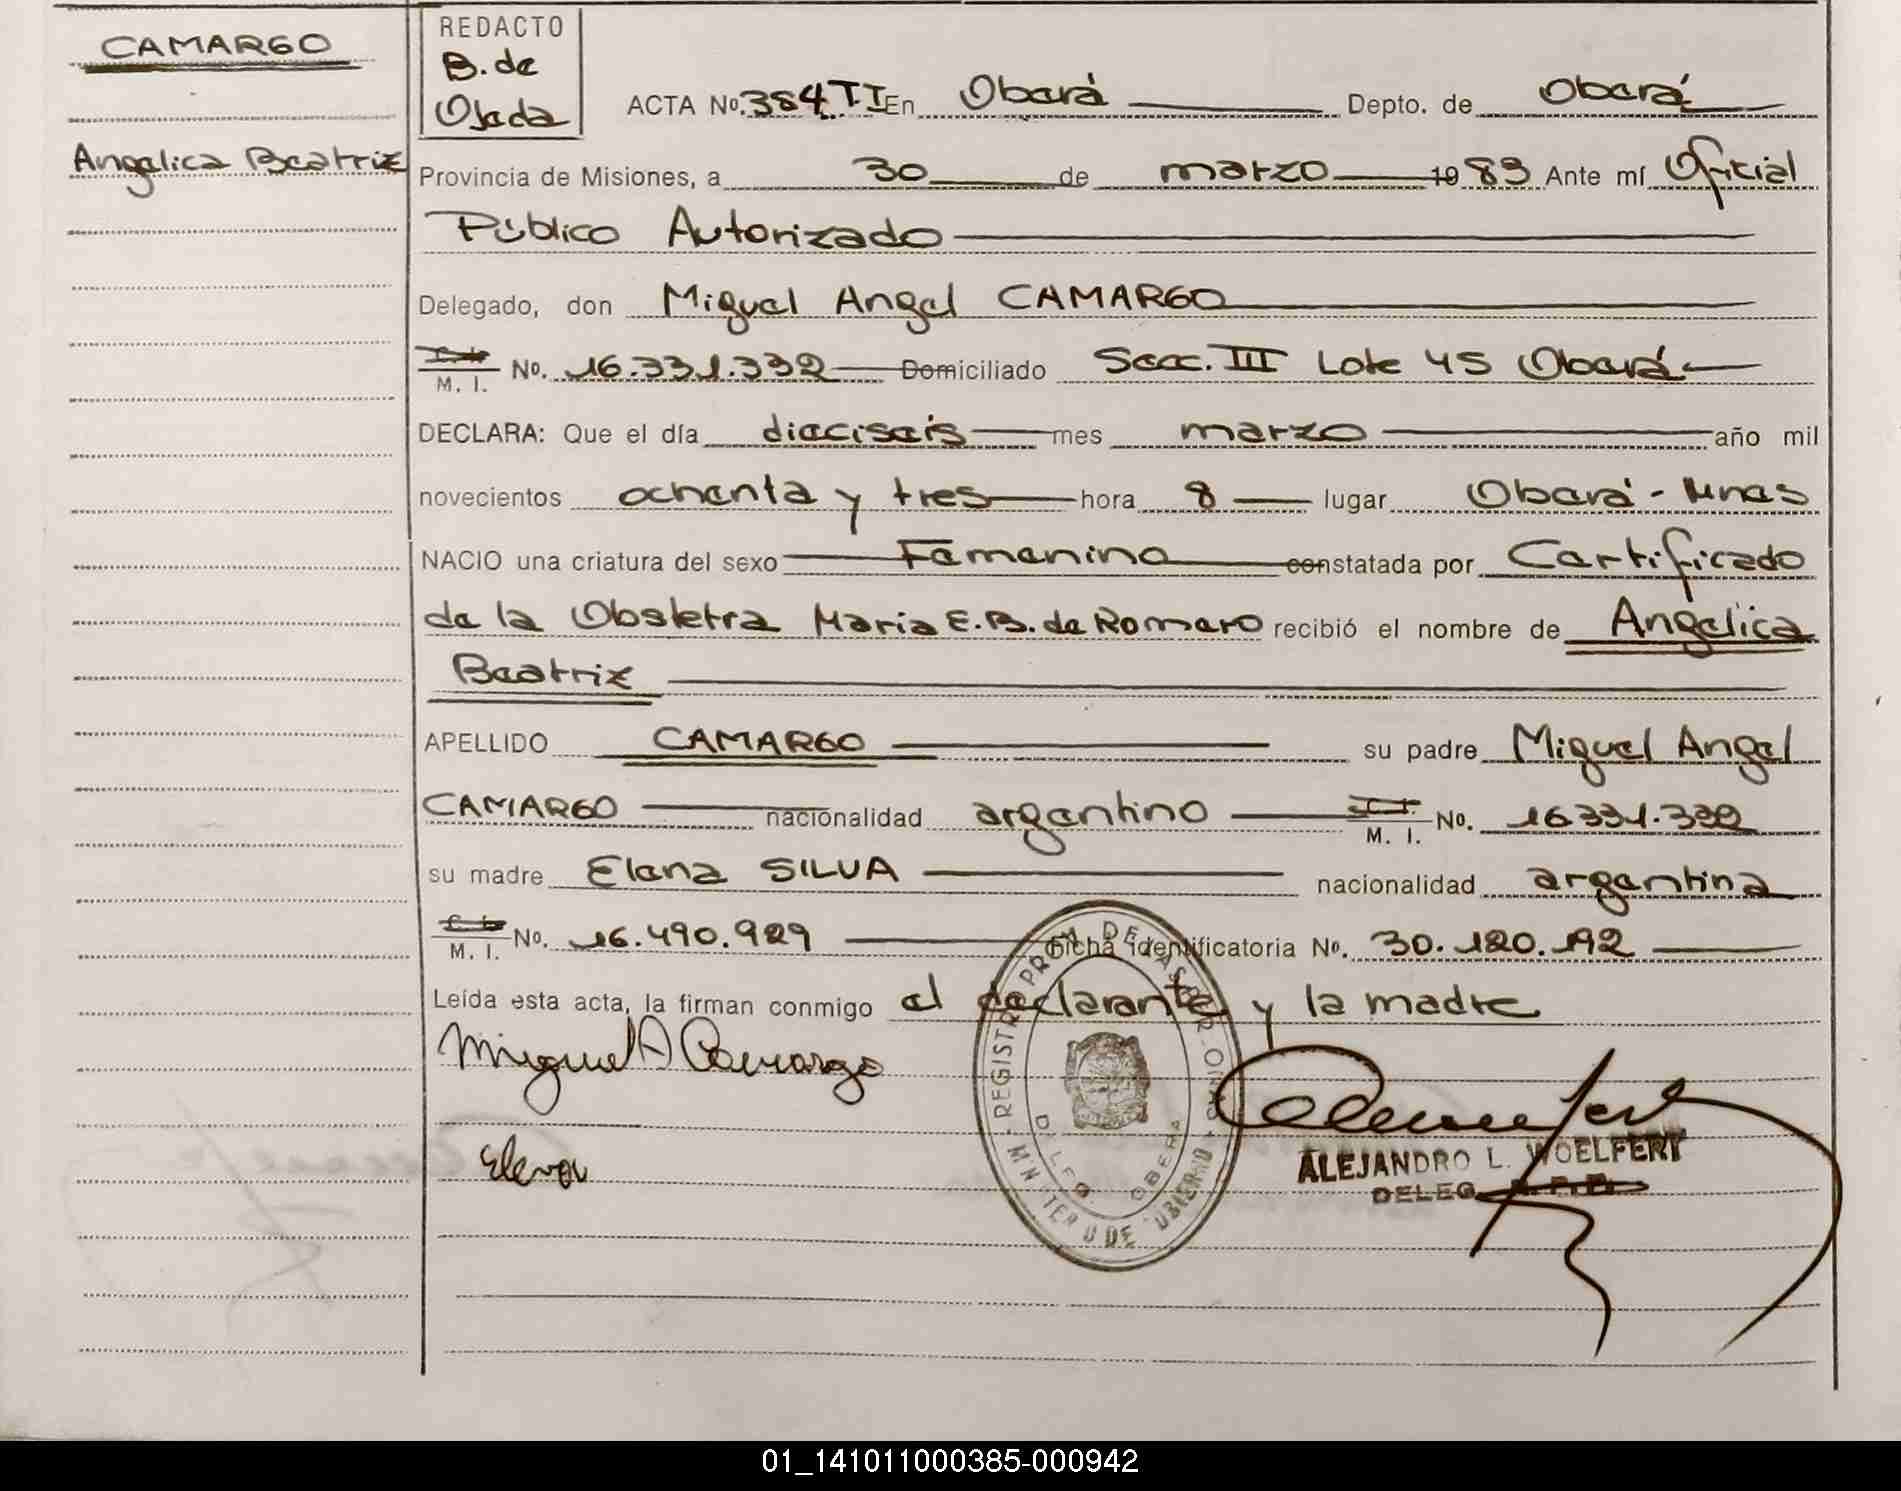 CAMARGO
Angelica Beatriz
REDACTO
B. de
Ojeda
ACTA No. 384 T I En Oberá Depto. de Oberá
Provincia de Misiones, a 30 de marzo 1983 Ante mí Oficial
Público Autorizado
Delegado, don Miguel Angel CAMARGO
M. I. No. 16.331.332 Domiciliado Secc. III Lote 45 Oberá
DECLARA: Que el día dieciseis mes marzo año mil
novecientos ochenta y tres hora 8 lugar Oberá - Mnes
NACIO una criatura del sexo Femenino constatada por Certificado
de la Obstetra Maria E. B. de Romero recibió el nombre de Angelica
Beatriz
APELLIDO CAMARGO su padre Miguel Angel
CAMARGO nacionalidad argentino M. I. No. 16.331.332
su madre Elena SILVA nacionalidad argentina
M. I. No. 16.490.929 Ficha identificatoria No. 30.120.192
Leída esta acta, la firman conmigo el declarante y la madre
Miguel A Camargo
Elena
REGISTRO PROV. DE LAS PERSONAS
DELEG. OBERA
MINISTERIO DE GOBIERNO
ALEJANDRO L. WOELFERT
DELEG.
01_141011000385-000942